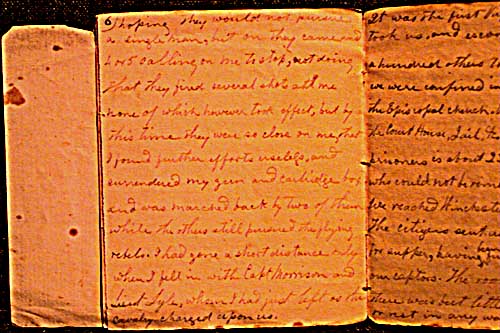 6 hoping they would not pursue
a single man, but on they came and
soon calling on me to stop, not doing
that they fired several shots at me
none of which however took effect, but by
this time they were so close on me, that
I found further efforts useless, and
surrendered my gun and cartridge box
and was marched back by two of them
while the others still pursued the flying
rebels. I had gone a short distance only
when I fell in with Capt Morrison and
Lieut Lyle, whom I had just left as the
cavalry charged upon us.
It was the first
took us, and
a hundred others
we were confined
the Episcopal church
the Court House, Jail
prisoners is about
who could not
We reached
The citizens sent
for supper, having
our captors. The
there was but
or not in any